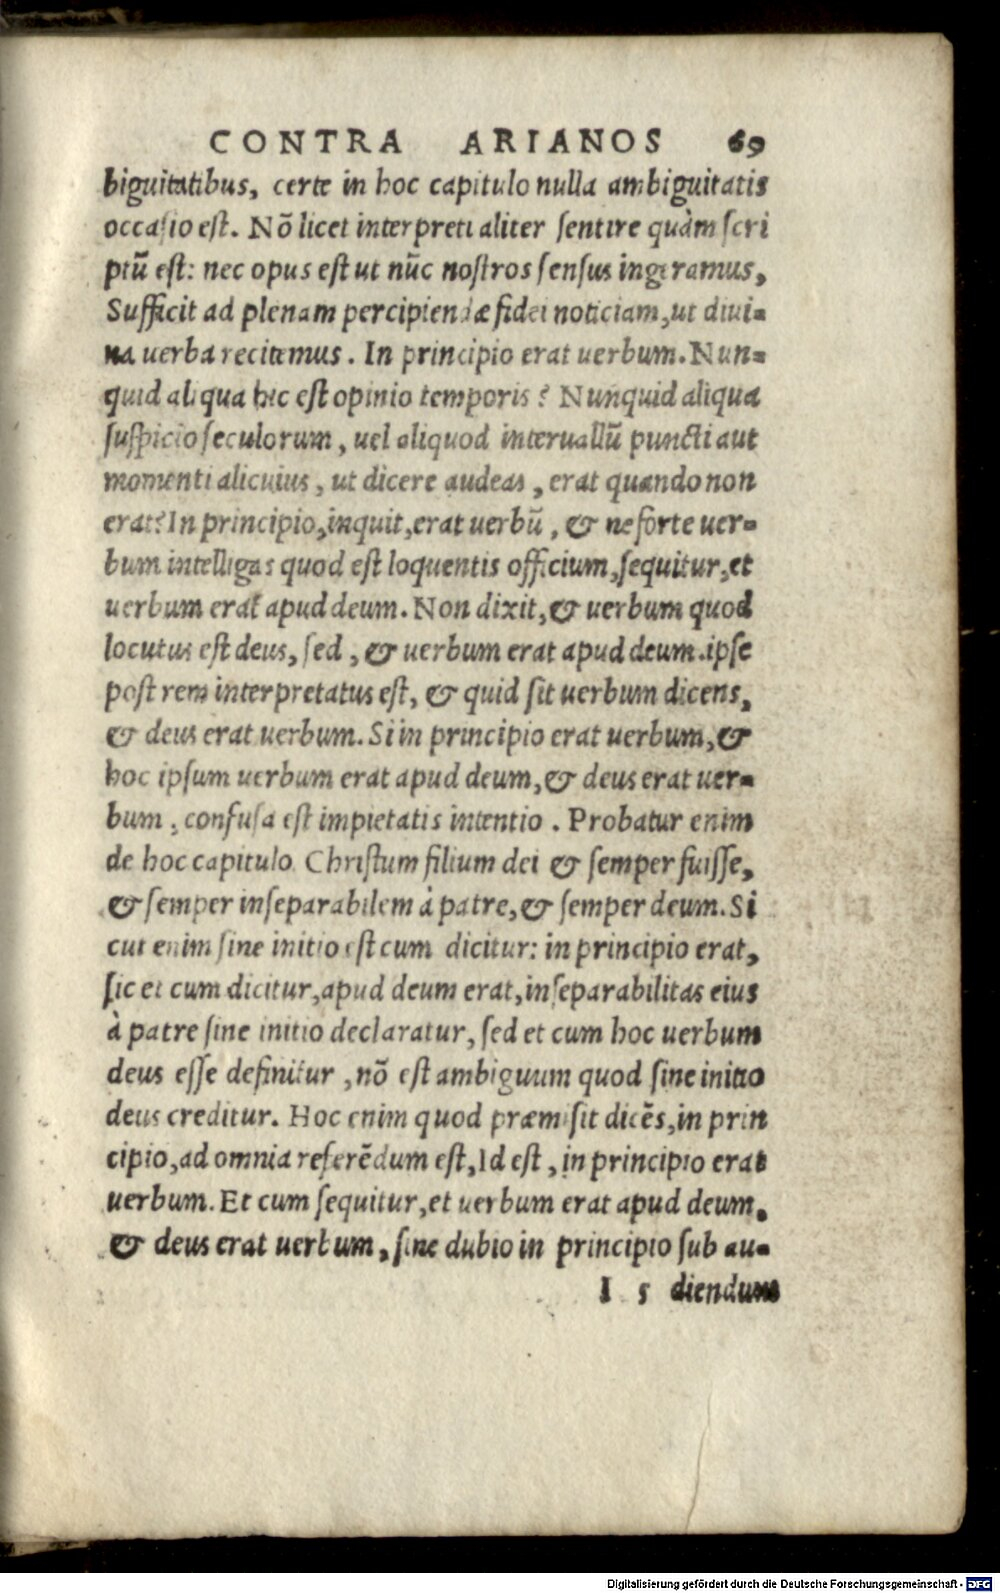 CONTRA ARIANOS 69
biguitatibus, certe in hoc capitulo nulla ambiguitatis
occasio est. Nõ licet interpreti aliter sentire quàm scri
ptũ est: nec opus est ut nũc nostros sensus ingeramus,
Sufficit ad plenam percipiendæ fidei noticiam, ut diui-
na uerba recitemus. In principio erat uerbum. Nun-
quid aliqua hic est opinio temporis? Nunquid aliqua
suspicio seculorum, uel aliquod interuallũ puncti aut
momenti alicuius, ut dicere audeas, erat quando non
erat? In principio, inquit, erat uerbũ, & ne forte uer-
bum intelligas quod est loquentis officium, sequitur, et
uerbum erat apud deum. Non dixit, & uerbum quod
locutus est deus, sed, & uerbum erat apud deum. ipse
post rem interpretatus est, & quid sit uerbum dicens,
& deus erat uerbum. Si in principio erat uerbum, &
hoc ipsum uerbum erat apud deum, & deus erat uer-
bum, confusa est impietatis intentio. Probatur enim
de hoc capitulo Christum filium dei & semper fuisse,
& semper inseparabilem à patre, & semper deum. Si
cut enim sine initio est cum dicitur: in principio erat,
sic et cum dicitur, apud deum erat, inseparabilitas eius
à patre sine initio declaratur, sed et cum hoc uerbum
deus esse definitur, nõ est ambiguum quod sine initio
deus creditur. Hoc enim quod præmisit dicẽs, in prin
cipio, ad omnia referẽdum est, Id est, in principio erat
uerbum. Et cum sequitur, et uerbum erat apud deum,
& deus erat uerbum, sine dubio in principio sub au-
I 5 diendum
Digitalisierung gefördert durch die Deutsche Forschungsgemeinschaft - DFG